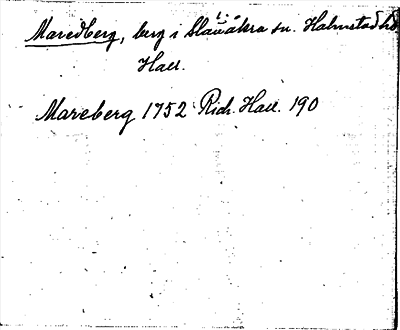 Maredberg, berg i Slättåkra sn. Halmstad hd
Hall.
Mareberg 1752 Rich. Hall. 190